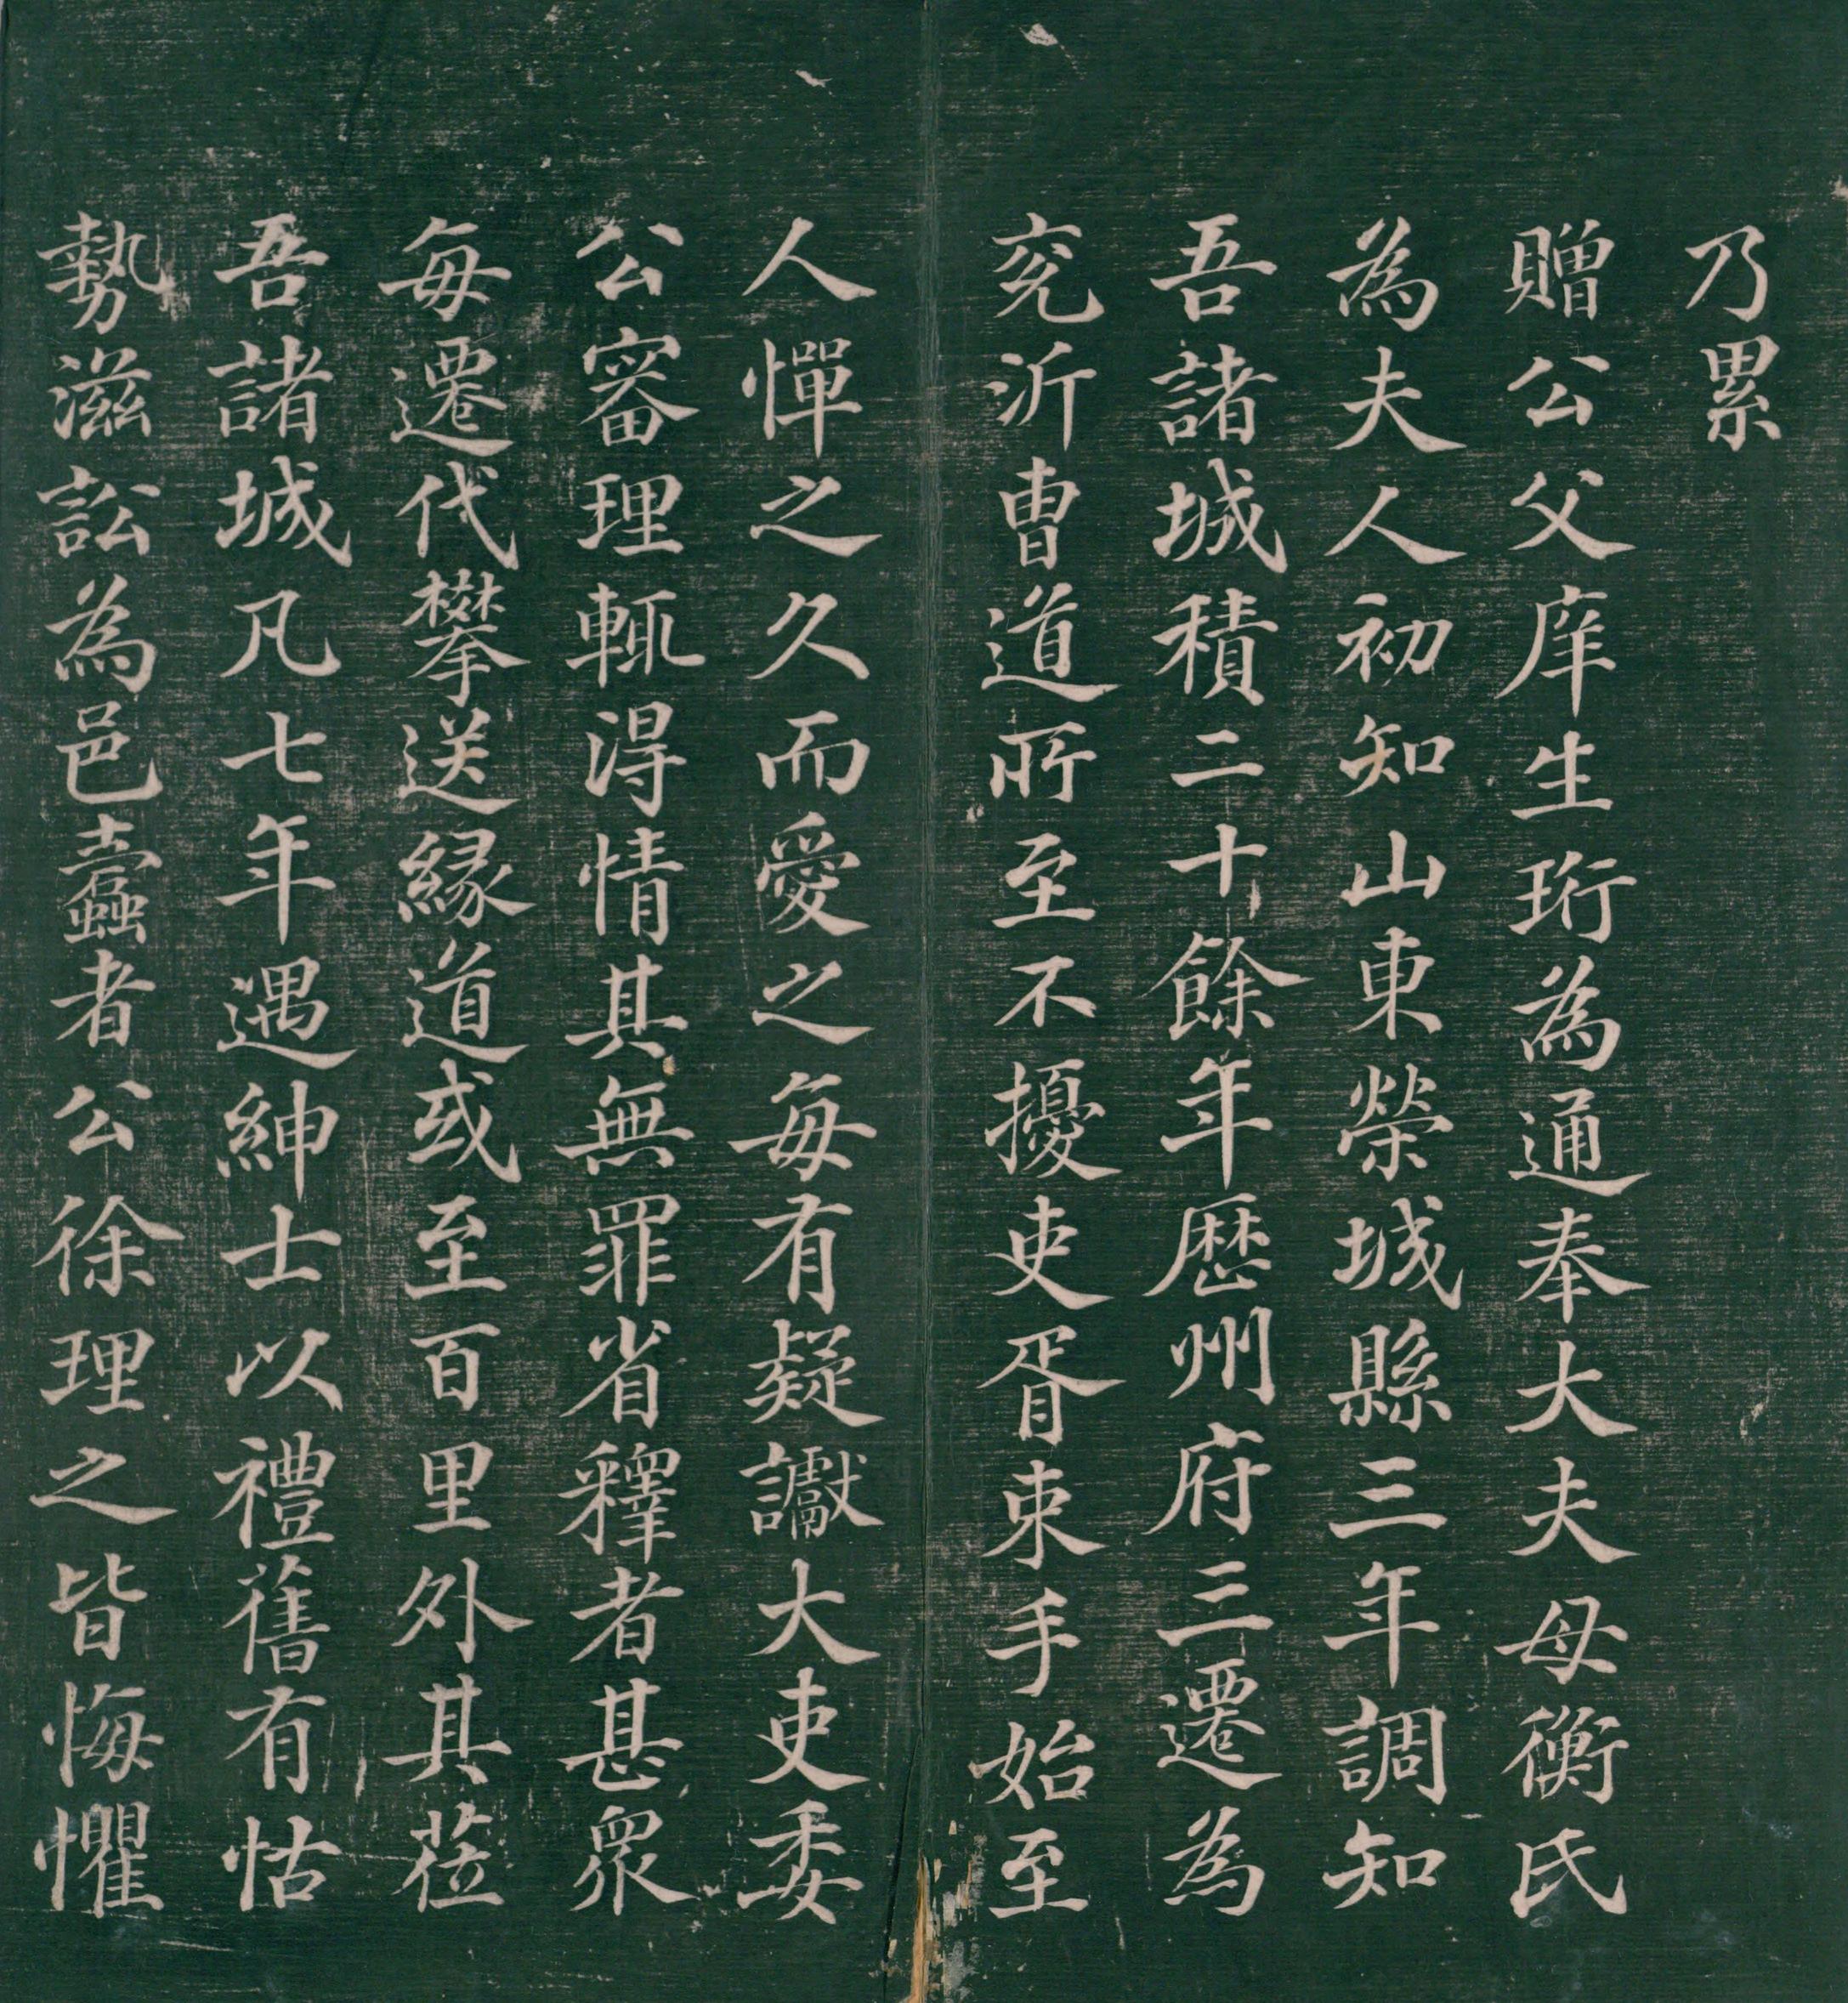 乃累
贈公父庠生珩為通奉大夫母衡氏
為夫人初知山東榮城縣三年調知
吾諸城積二十餘年歷州府三遷為
兖沂曹道所至不擾吏胥束手始至
人憚之久而愛之每有疑讞大吏委
公審理輒得情其無罪省釋者甚衆
每遷代攀送緣道或至百里外其莅
吾諸城凡七年遇紳士以禮舊有怙
勢滋訟為邑蠹者公徐理之皆悔懼